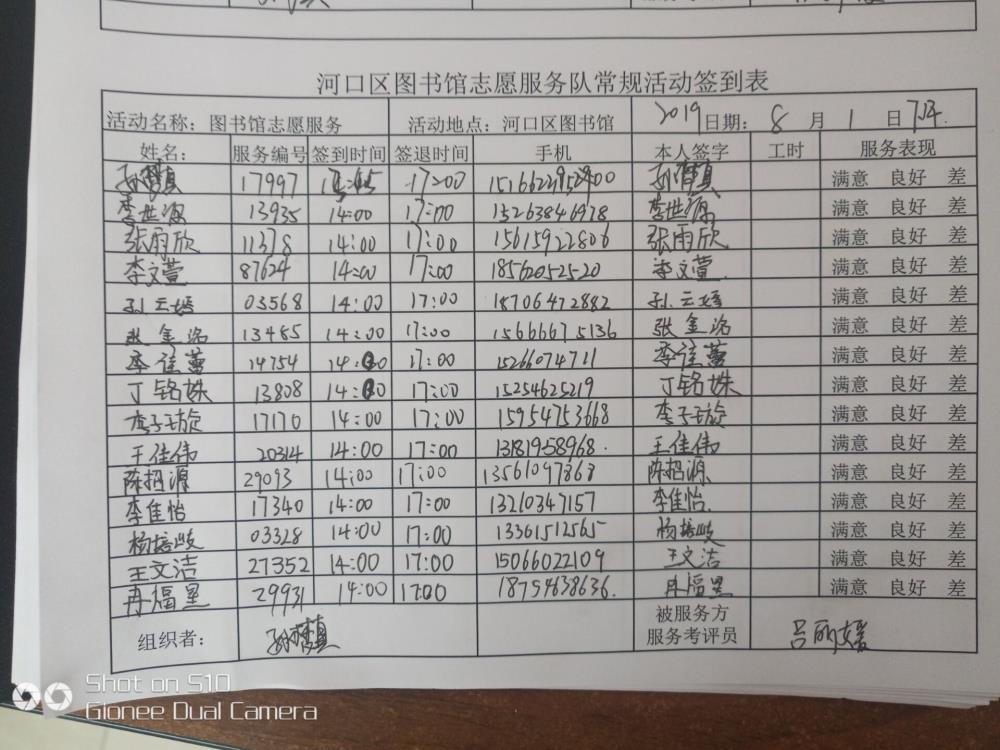 河口区图书馆志愿服务队常规活动签到表
活动名称：图书馆志愿服务 活动地点：河口区图书馆 2019日期：8月1日下午.
姓名： 服务编号 签到时间 签退时间 手机 本人签字 工时 服务表现
17997 17:00 满意 良好 差
李世源 13935 14:00 17:00 15263846978 李世源 满意 良好 差
张雨欣 11378 14:00 17:00 15615922806 张雨欣 满意 良好 差
李文萱 87624 14:00 17:00 18562052520 李文萱. 满意 良好 差
孙云嫱 03568 14:00 17:00 18706472882 孙云嫱 满意 良好 差
张金洺 13485 14:00 17:00 15666675136 张金洺 满意 良好 差
李佳蔓 14754 14:00 17:00 15266074711 李佳蔓 满意 良好 差
丁铭姝 13808 14:00 17:00 15254625219 丁铭姝 满意 良好 差
李子璇 17170 14:00 17:00 15954753668 李子璇 满意 良好 差
王佳伟 20314 14:00 17:00 13181958968. 王佳伟 满意 良好 差
陈招源 29093 14:00 17:00 13561097868 陈招源 满意 良好 差
李佳怡 17340 14:00 17:00 13210347157 李佳怡. 满意 良好 差
杨培岐 03328 14:00 17:00 13361512565 杨培岐 满意 良好 差
王文洁 27352 14:00 17:00 15066022109 王文洁 满意 良好 差
冉煜星 29931 14:00 17:00 18754638636. 冉煜星 满意 良好 差
组织者： 被服务方
服务考评员 吕丽媛
Shot on S10
Gionee Dual Camera